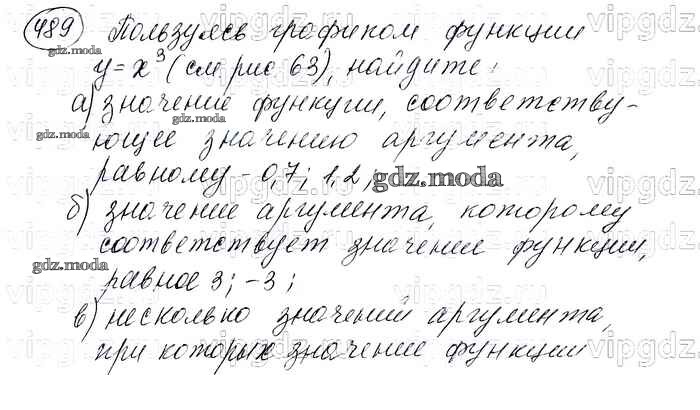 489 Пользуясь графиком функции
y = x³ (см. рис 63), найдите:
а) значение функции, соответству-
ющее значению аргумента,
равному -0,7; 1,2;
б) значение аргумента, которому
соответствует значение функции,
равное 3; -3;
в) несколько значений аргумента,
при которых значение функции
gdz.moda
gdz.moda
gdz.moda
gdz.moda
gdz.moda